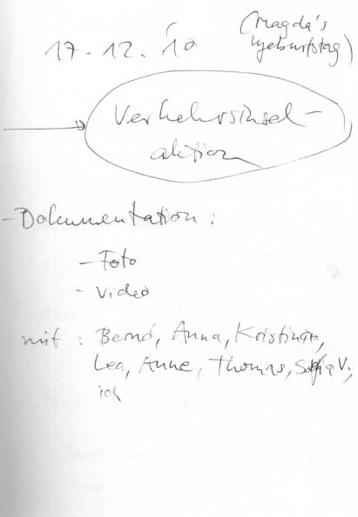 17.12.'10 (Magda's
Geburtstag)
Verkehrsinsel-
aktion
- Dokumentation:
- Foto
- Video
mit: Bernd, Anna, Kristina,
Lea, Anne, Thomas, Sofia V.,
ich